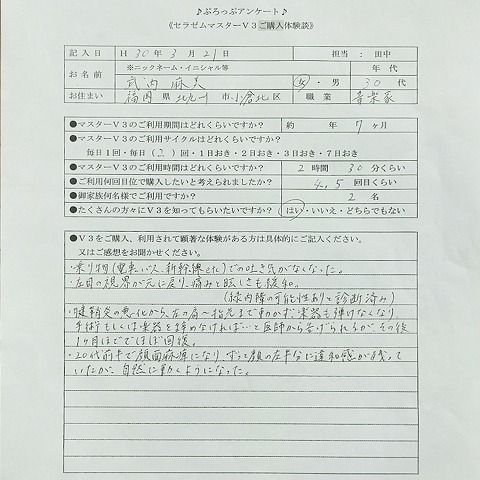 ♪ぷろっぷアンケート♪
《セラゼムマスターV3ご購入体験談》
記入日 H 30年 3月 21日 担当：田中
お名前 ※ニックネーム・イニシャル等 武内 麻美 女・男 年代 30代
お住まい 福岡県 北九州市 小倉北区 職業 音楽家
●マスターV3のご利用期間はどれくらいですか？ 約 年 7ヶ月
●マスターV3のご利用サイクルはどれくらいですか？
毎日1回・毎日(2)回・1日おき・2日おき・3日おき・7日おき
●マスターV3のご利用時間はどれくらいですか？ 2時間 30分くらい
●ご利用何回目位で購入したいと考えられましたか？ 4,5回目くらい
●御家族何名様でご利用ですか？ 2名
●たくさんの方々にV3を知ってもらいたいですか？ はい・いいえ・どちらでもない
●V3をご購入、利用されて顕著な体験がある方は具体的にご記入ください。
又はご感想をお聞かせください。
・乗り物(電車、バス、新幹線etc)での吐き気がなくなった。
・左目の視界が元に戻り、痛みと眩しさも緩和。
(緑内障の可能性ありと診断済み)
・腱鞘炎の悪化から、左の肩〜指先まで動かず楽器も弾けなくなり
手術もしくは楽器を諦めなければいと医師から告げられるが、その後
1ヶ月ほどでほぼ回復。
・20代前半で顔面麻痺になり、ずっと顔の左半分に違和感が残って
いたが、自然に動くようになった。